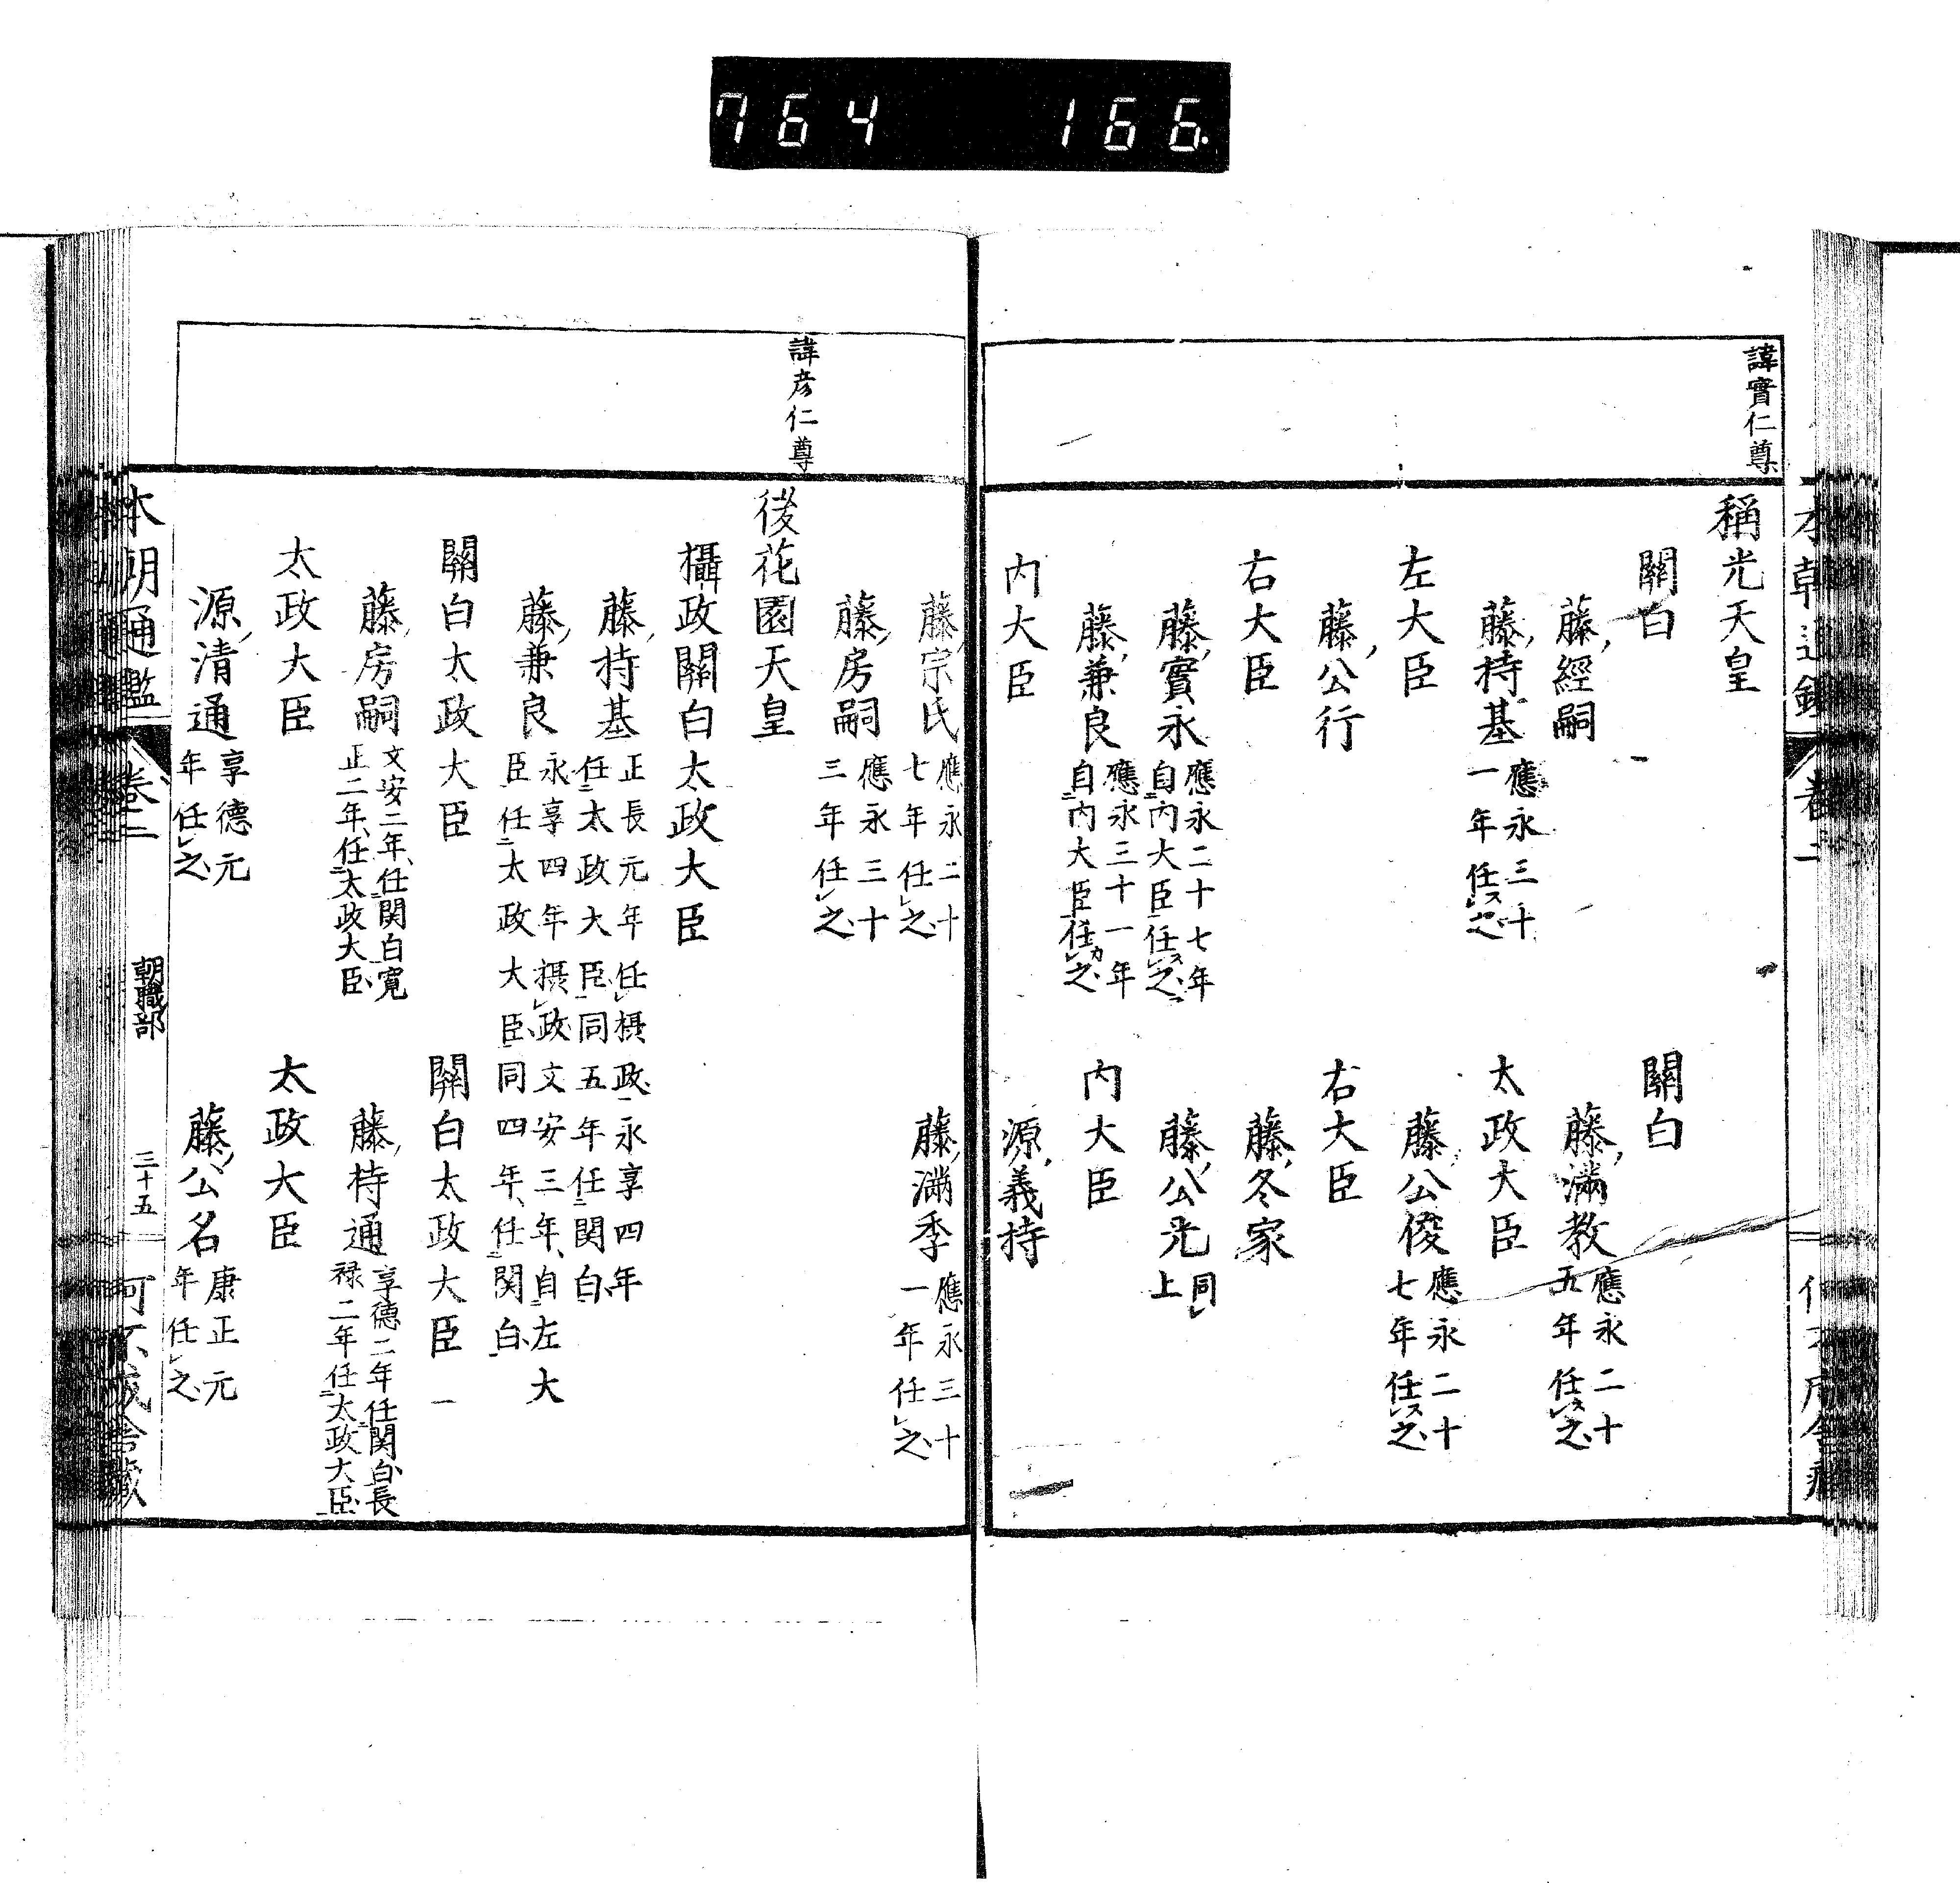 764 166.
諱實仁尊
稱光天皇
關白
關白
藤經嗣
藤滿教 應永二十五年任之
藤持基 應永三十一年任之
太政大臣
左大臣
藤公俊 應永二十七年任之
藤公行
右大臣
右大臣
藤冬家
藤實永 應永二十七年自内大臣任之
藤公光 同上
藤兼良 應永三十一年自内大臣任之
内大臣
内大臣
源義持
藤宗氏 應永二十七年任之
藤滿季 應永三十一年任之
藤房嗣 應永三十三年任之
諱彦仁尊
後花園天皇
攝政關白太政大臣
藤持基 正長元年任摂政永享四年任太政大臣同五年任関白
藤兼良 永享四年摂政文安三年自左大臣任太政大臣同四年任関白
關白太政大臣
關白太政大臣
藤房嗣 文安二年任関白寛正二年任太政大臣
藤持通 享德二年任関白長禄二年任太政大臣
太政大臣
太政大臣
源清通 享德元年任之
藤公名 康正元年任之
本朝通鑑 卷二 朝職部 三十五